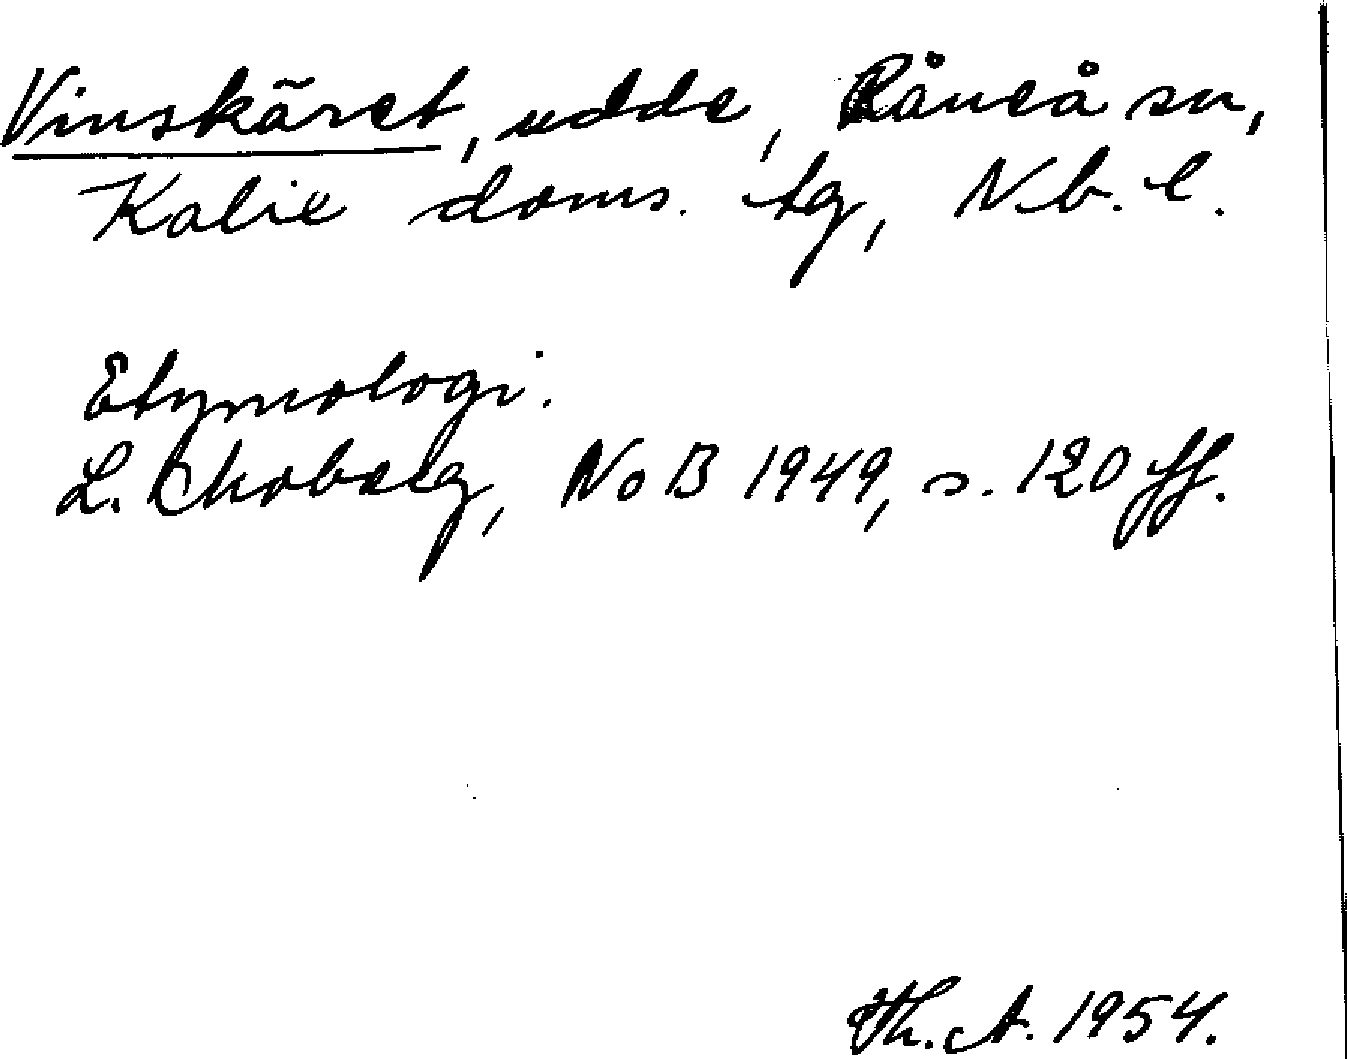 Vinskäret, udde, Råneå sn,
Kalix doms. tg, Nb. l.
Etymologi.
L. Moberg, NoB 1949, s. 120 ff.
Th. A. 1954.